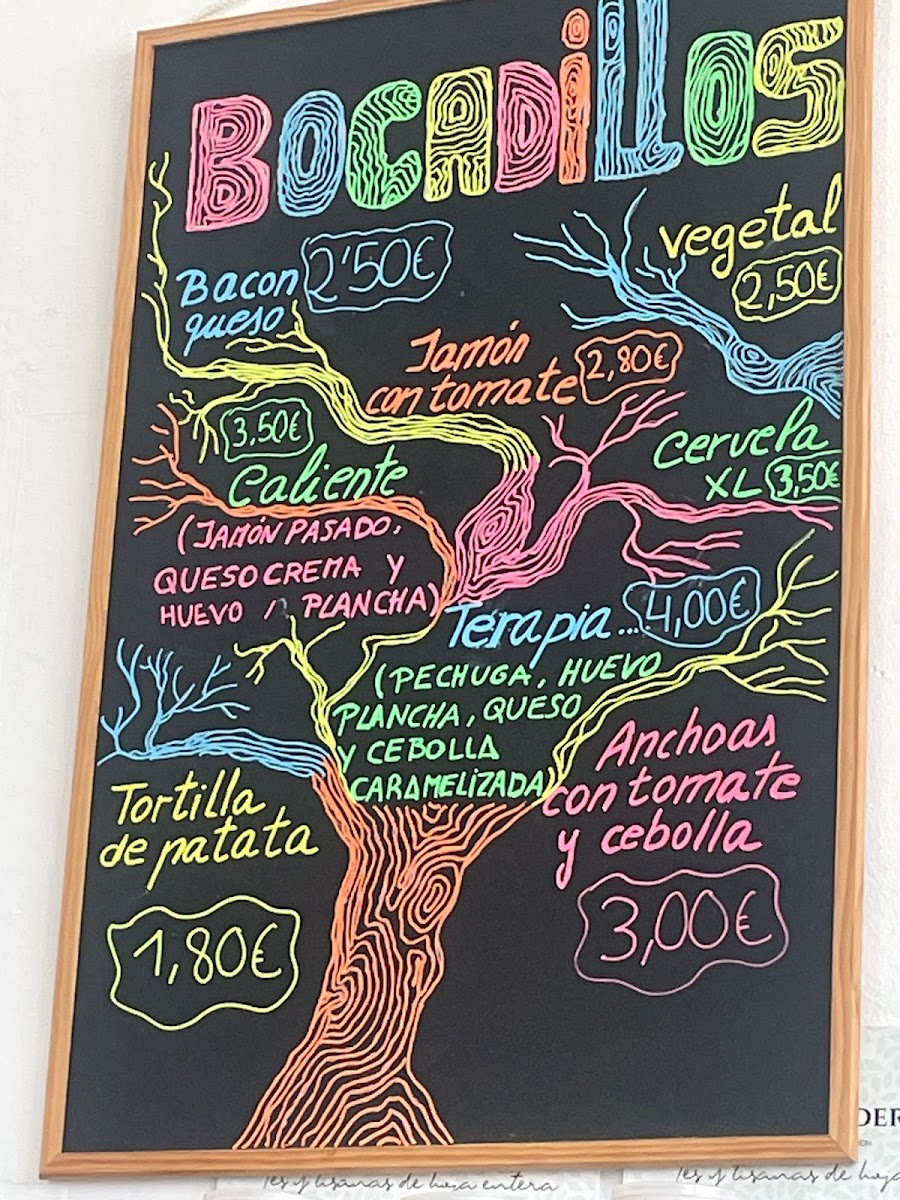 BOCADILLOS
Bacon
queso
2'50€
vegetal
2,50€
Jamón
con tomate
2,80€
3,50€
Caliente
(JAMÓN PASADO,
QUESO CREMA Y
HUEVO / PLANCHA)
Cervela
XL 3,50€
Terapia... 4,00€
(PECHUGA, HUEVO
PLANCHA, QUESO
Y CEBOLLA
CARAMELIZADA)
Tortilla
de patata
1,80€
Anchoas
con tomate
y cebolla
3,00€
DER
Tés y tisanas de hoja entera
Tés y tisanas de hoja